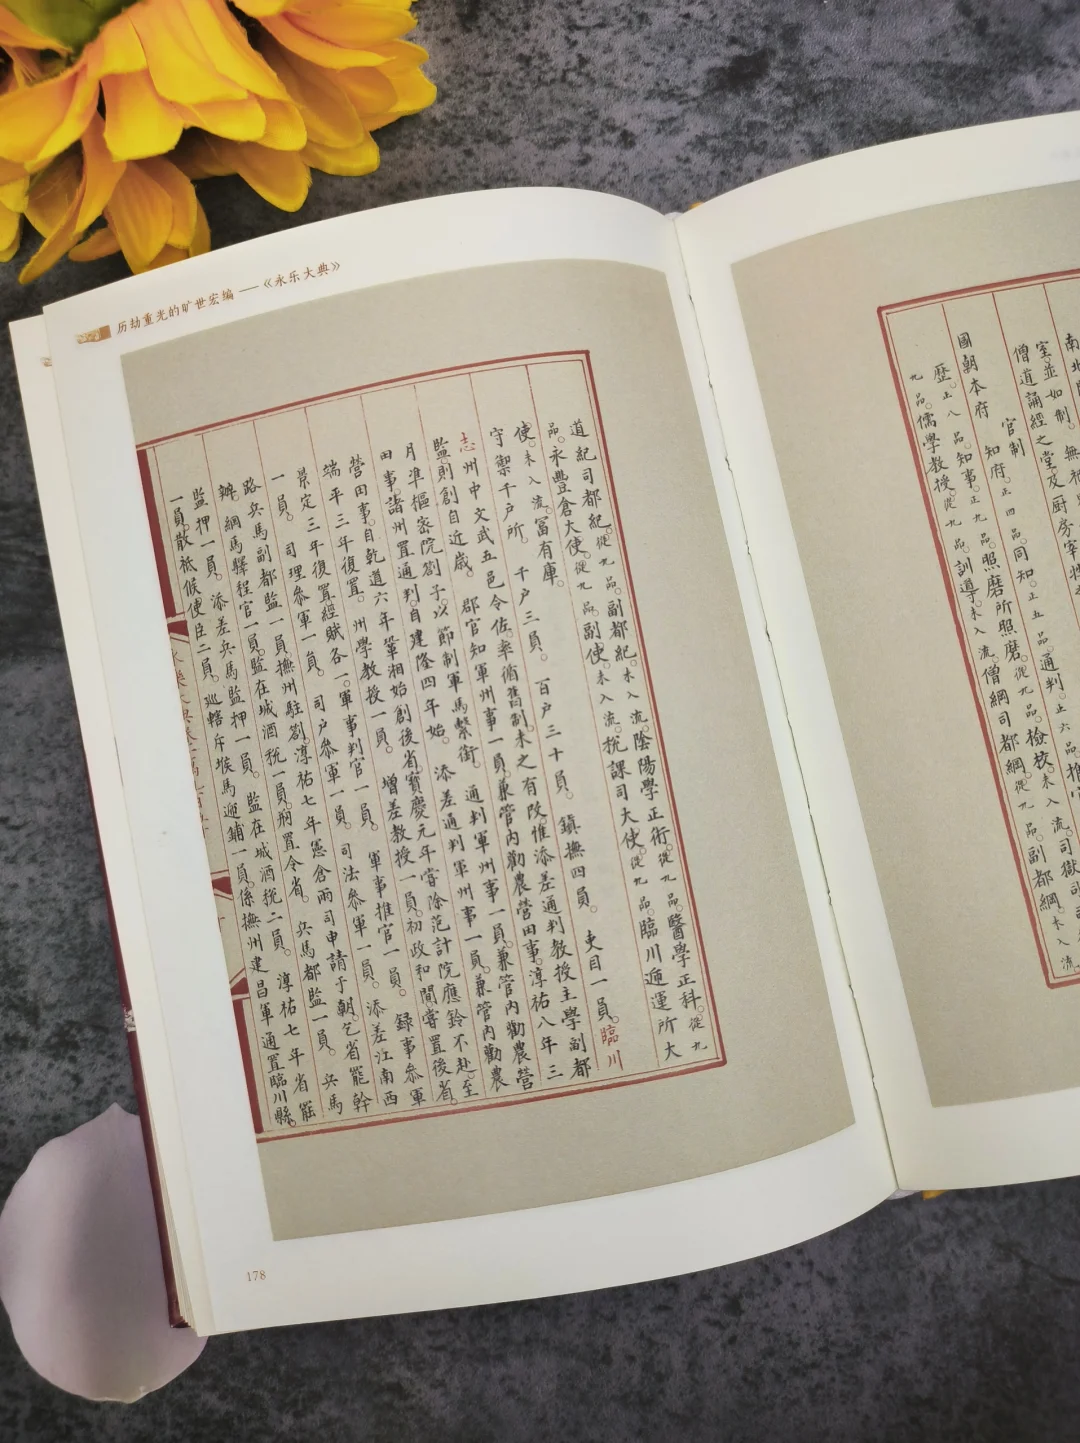 历劫重光的旷世宏编 —《永乐大典》
道紀司都紀。從九品。副都紀。未入流。陰陽學正術。從九品。醫學正科。從九
品。永豐倉大使。從九品。副使。未入流。税課司大使。從九品。臨川遞運所大
使。未入流。富有庫。
守禦千戶所。 千戶三員。 百戶三十員。 鎮撫四員。 吏目一員。臨川
志州中文武五邑令佐。率循舊副。未之有改。惟添差通判教授主學副都
監。則創自近歲。 郡官知軍州事一員。兼管内勸農營田事。淳祐八年三
月準樞密院劄子。以節制軍馬繫銜。 通判軍州事一員。兼管内勸農營
田事。諸州置通判。自建隆四年始。 添差通判軍州事一員。兼管内勸農
營田事。自乾道六年鞏湘始創後省。寶慶元年嘗除范計院應鈴不赴。至
端平三年復置。州學教授一員。 增差教授一員。初政和間嘗置後省。
景定三年復置經賦各一。軍事判官一員。 軍事推官一員。 録事參軍
一員。 司理參軍一員。 司戶參軍一員。 司法參軍一員。添差江南西
路兵馬副都監一員。撫州駐劄。淳祐七年憲倉兩司申請于朝。乞省罷幹
辦綱馬驛程官一員。監在城酒税一員。置令省。 兵馬都監一員。 兵馬
監押一員。 添差兵馬監押一員。 監在城酒税二員。 淳祐七年省罷
一員。散祗候使臣二員。巡轄斥堠馬遞鋪一員。係撫州建昌軍通置臨川縣。
178
南北
室。並如制。
僧道誦經之堂。及厨房宰
官制
國朝本府 知府。正四品。同知。正五品。通判。正六品。推官
歷。正八品。知事。正九品。照磨所照磨。從九品。檢校。未入流。司獄
九品。儒學教授。從九品。訓導。未入流。僧綱司都綱。從九品。副都綱。未入流。